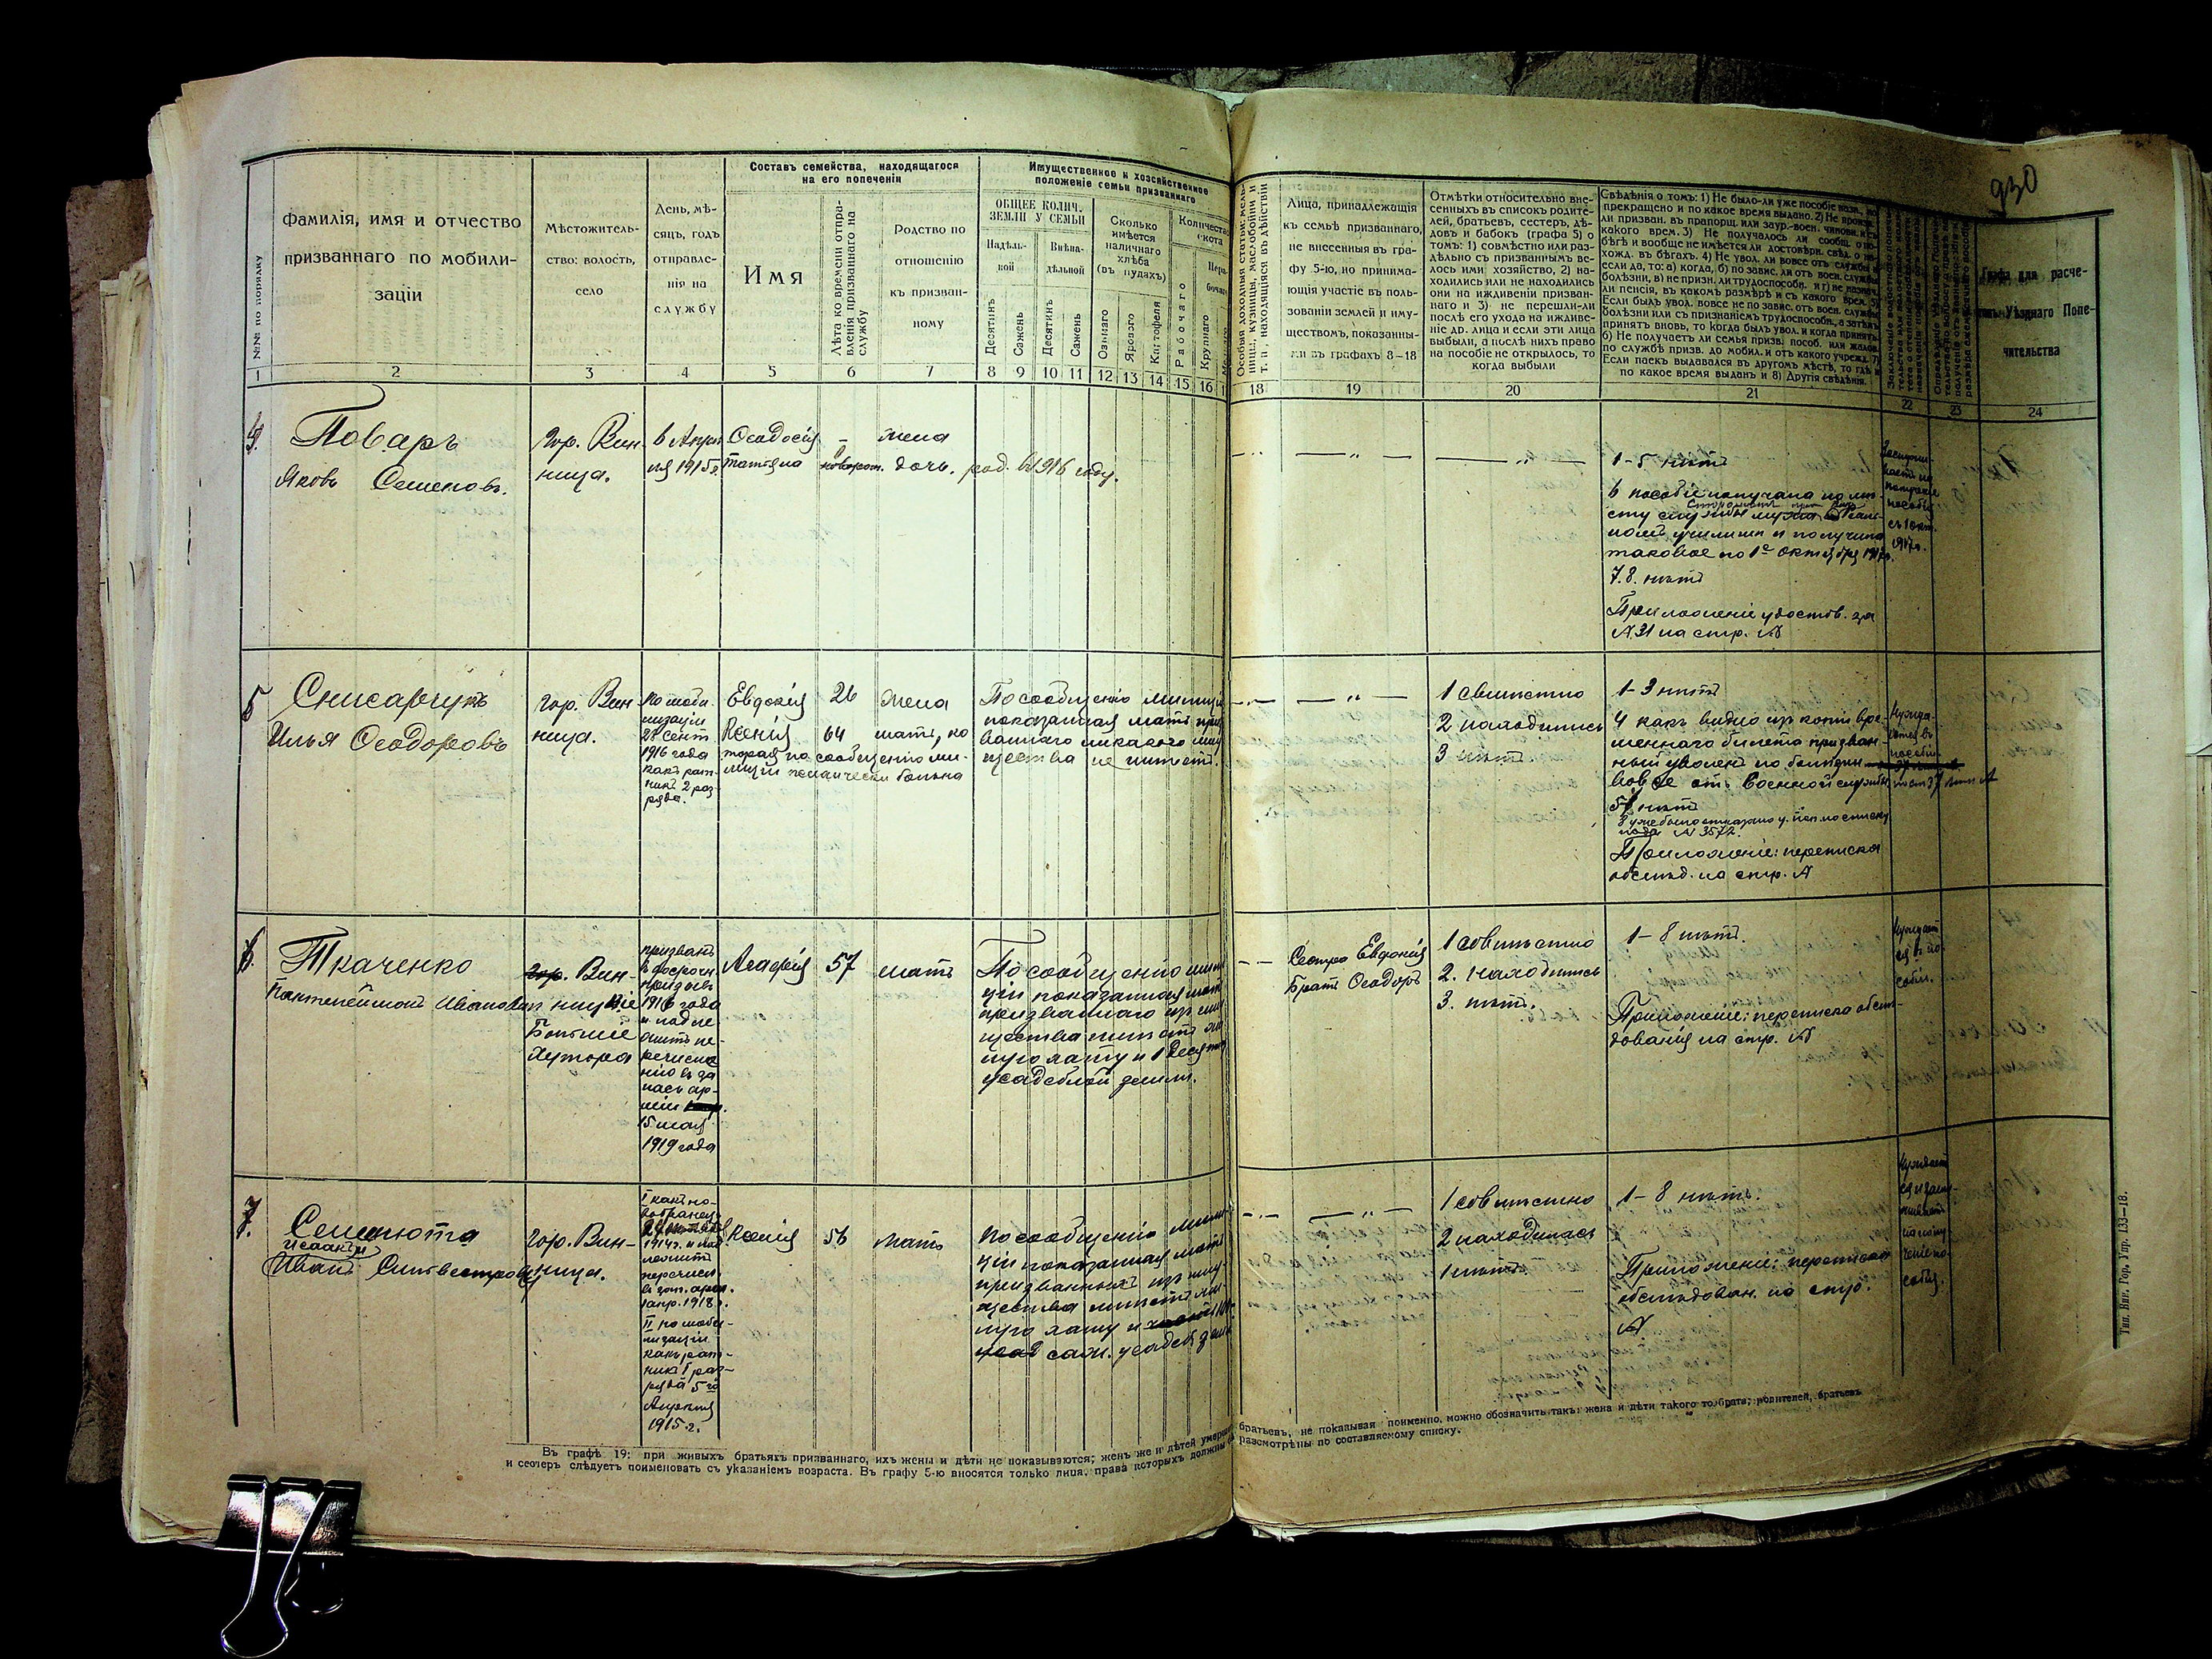 930
№№ по порядку
Фамилія, имя и отчество
призваннаго по мобили-
заціи
Мѣстожитель-
ство: волость,
село
День, мѣ-
сяцъ, годъ
отправле-
нія на
службу
Составъ семейства, находящагося
на его попеченіи
Имя
Лѣта ко времени отпра-
вленія призваннаго на
службу
Родство по
отношенію
къ призван-
ному
Имущественное и хозяйственное
положеніе семьи призваннаго
ОБЩЕЕ КОЛИЧ.
ЗЕМЛИ У СЕМЬИ
Надѣль-
ной
Внѣна-
дѣльной
Десятинъ
Сажень
Десятинъ
Сажень
Сколько
имѣется
наличнаго
хлѣба
(въ пудахъ)
Озимаго
Ярового
Картофеля
Количество
скота
Рабочаго
Крупнаго
Особыя доходныя статьи: мель-
ницы, кузницы, маслобойни и
т. п. находящіяся въ дѣйствіи
Лица, принадлежащія
къ семьѣ призваннаго,
не внесенныя въ гра-
фу 5-ю, но принима-
ющія участіе въ поль-
зованіи землей и иму-
ществомъ, показанны-
ми въ графахъ 8—18
Отмѣтки относительно вне-
сенныхъ въ списокъ родите-
лей, братьевъ, сестеръ, дѣ-
довъ и бабокъ (графа 5) о
томъ: 1) совмѣстно или раз-
дѣльно съ призваннымъ ве-
лось ими хозяйство, 2) на-
ходились или не находились
они на иждивеніи призван-
наго и 3) не перешли-ли
послѣ его ухода на иждиве-
ніе др. лица и если эти лица
выбыли, а послѣ нихъ право
на пособіе не открылось, то
когда выбыли
Свѣдѣнія о томъ: 1) Не было-ли уже пособіе назн., но
прекращено и по какое время выдано. 2) Не произв.
ли призван. въ прапорщ. или заур.-воен. чинови. и съ
какого врем. 3) Не получалось ли сообщ. о по-
бѣгѣ и вообще не имѣется ли достовѣрн. свѣд. о на-
хожд. въ бѣгахъ. 4) Не увол. ли вовсе отъ службы и
если да, то: а) когда, б) по завис. ли отъ воен. службы
болѣзни, в) не призн. ли трудоспособн. и г) не назнач.
ли пенсія, въ какомъ размѣрѣ и съ какого врем. 5)
Если былъ увол. вовсе не по завис. отъ воен. службы
болѣзни или съ признаніемъ трудоспособн., а затѣмъ
принятъ вновь, то когда былъ увол. и когда принятъ.
6) Не получаетъ ли семья призв. пособ. или жалов.
по службѣ призв. до мобил. и отъ какого учрежд. 7)
Если паекъ выдавался въ другомъ мѣстѣ, то гдѣ и
по какое время выданъ и 8) Другія свѣдѣнія.
Графа для расче-
товъ Уѣзднаго Попе-
чительства
1 2 3 4 5 6 7 8 9 10 11 12 13 14 15 16
18 19 20 21 22 23 24
4.
Поваръ
Яковъ Семеновъ.
гор. Вин-
ница.
6 Апрѣ-
ля 1915 г.
Ѳеодосія – жена
Татьяна новорож. дочь. род. въ 1916 году.
1-5 нѣтъ
6 пособіе получала по мѣ-
сту службы мужа
номъ училищѣ и получила
таковое по 1е Октября 1917 г.
7.8. нѣтъ
Приложеніе: удостов. за
№ 31 на стр. №
съ 1 окт.
1917 г.
5
Снисарчукъ
Илья Ѳеодоровъ
гор. Вин-
ница.
По моби-
лизаціи
27 сент.
1916 года
какъ рат-
никъ 2 раз-
ряда.
Евдокія 26 жена
Ксенія 64 мать, ко
торая по сообщенію ми-
лиціи психически больна
По сообщенію милиціи
показанная мать приз
ваннаго никакого иму
щества не имѣетъ.
1 совмѣстно
2 находились
3 нѣтъ.
1-3 нѣтъ
4 какъ видно изъ копіи вре-
меннаго билета призван-
ный уволенъ по болѣзни
вовсе отъ Военной службы
5 нѣтъ
№ 3572.
Приложеніе: переписка
обслѣд. на стр. №
6.
Ткаченко
Пантелеймонъ Ивановъ
гор. Вин-
ница
Большіе
Хутора
призванъ
въ досрочн.
призывъ
1916 года
и подле-
житъ пе-
речисле-
нію въ за
пасъ ар-
міи
15 мая
1919 года
Агафія 57 мать
По сообщенію мили
ціи показанная мать
призваннаго изъ иму
щества имѣетъ ли
шь хату и 1 десятину
усадебной земли.
Сестра Евдокія
Братъ Ѳеодоръ
1 совмѣстно
2. находились
3. нѣтъ.
1-8 нѣтъ.
Приложеніе: переписка обслѣ-
дованія на стр. №
Нуждает
ся въ по-
собіи.
7.
Семенюта
Исаакъ и
Иванъ Сильвестровы
гор. Вин-
ница.
I какъ но-
вобранецъ
1914 г. и под
лежитъ
перечисл.
въ зап. арм.
1 апр. 1918 г.
II по моби-
лизаціи
какъ рат-
никъ I раз-
ряда 5 го
Апрѣля
1915 г.
Ксенія 56 мать
По сообщенію мили-
ціи показанная мать
призванныхъ изъ иму-
щества имѣетъ ли
шь хату и
саж. усадеб. земли
1 совмѣстно
2 находилась
1 нѣтъ.
1-8 нѣтъ.
Приложеніе: переписка
обслѣдован. на стр.
№
Въ графѣ 19: при живыхъ братьяхъ призваннаго, ихъ жены и дѣти не показываются; женъ же и дѣтей умершихъ братьевъ, не показывая поименно, можно обозначить такъ: жена и дѣти такого то брата; родителей, братьевъ
и сестеръ слѣдуетъ поименовать съ указаніемъ возраста. Въ графу 5-ю вносятся только лица, права которыхъ должны быть разсмотрѣны по составляемому списку.
Тип. Вин. Гор. Упр. 133—18.